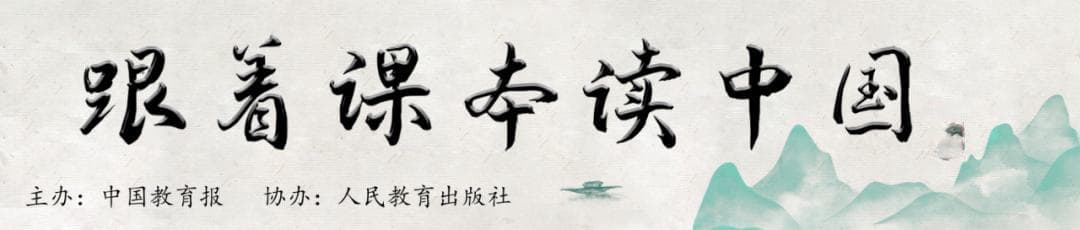 跟着课本读中国
主办：中国教育报 协办：人民教育出版社